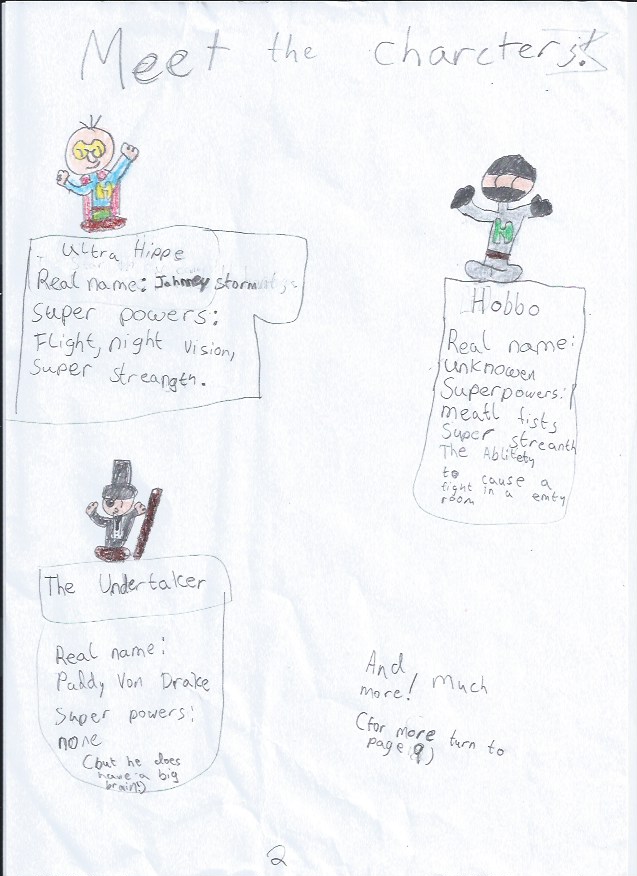 Meet the charcters!
Ultra Hippe
Real name: Johnney storm
Super powers:
Flight, night vision,
Super streangth.
Hobbo
Real name:
unknowen
Superpowers:
meatl fists
Super streanth
The Ablitety
to cause a
fight in a emty
room
The Undertaker
Real name:
Paddy Von Drake
Super powers:
none
(but he does
have a big
brain!)
And much
more!
(for more turn to
page 9)
2